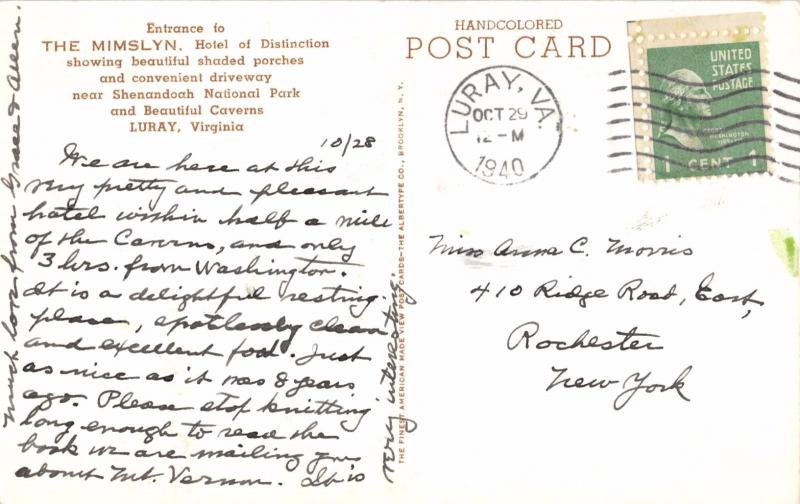 Entrance to
THE MIMSLYN. Hotel of Distinction
showing beautiful shaded porches
and convenient driveway
near Shenandoah National Park
and Beautiful Caverns
LURAY, Virginia
10/28
We are here at this
very pretty and pleasant
hotel within half a mile
of the Caverns, and only
3 hrs. from Washington.
It is a delightful resting
place, spotlessly clean
and excellent food. Just
as nice as it was 8 years
ago. Please stop knitting
long enough to read the
book we are mailing you
about Mt. Vernon. It is
very interesting.
Much love from Grace &
THE FINEST AMERICAN MADE VIEW POST CARDS—THE ALBERTYPE CO., BROOKLYN, N. Y.
HANDCOLORED
POST CARD
LURAY, VA.
OCT 29
12-M
1940
UNITED
STATES
POSTAGE
GEORGE
WASHINGTON
1 CENT 1
Miss Anna C. Morris
410 Ridge Road, East,
Rochester
New York